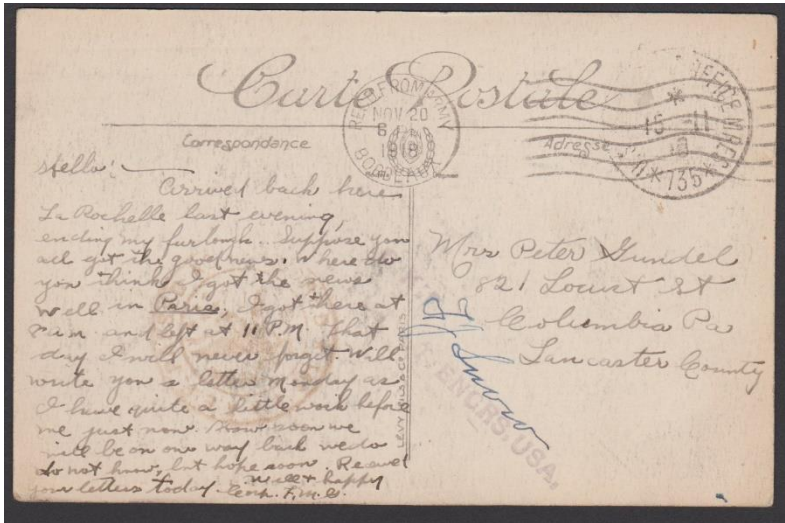 Carte Postale
REC'D FROM ARMY
NOV 20
1918
BORDEAUX
OFFICE
15 11
* 735 *
Correspondance
Adresse
Hello:
Arrived back here
La Rochelle last evening,
ending my furlough. Suppose you
all got the good news. Where do
you think I got the news
well in Paris, I got there at
and left at 11 P.M. That
day I will never forget. Will
write you a letter Monday as
I have quite a little work before
me just now. How soon we
will be on our way back we do
do not know, but hope soon. Recived
your letters today. Well & happy
Corp. F.M.G.
Mrs Peter Gundel
821 Locust St
Columbia Pa
Lancaster County
LEVY FILS & Cie PARIS
ENGRS. USA.